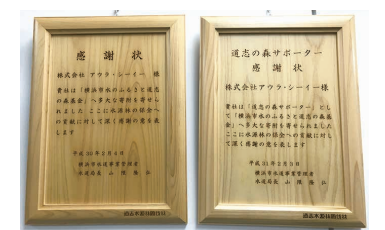 感謝状
株式会社 アウラ・シーイー 様
貴社は「横浜市水のふるさと道志
の森基金」へ多大な寄附を寄せら
れました ここに水源林の保全へ
の貢献に対して深く感謝の意を表
します
平成30年2月6日
横浜市水道事業管理者
水道局長 山隈隆弘
道志の森サポーター
感謝状
株式会社アウラ・シーイー様
貴社は「道志の森サポーター」とし
て「横浜市水のふるさと道志の森基
金」へ多大な寄附を寄せられました
ここに水源林の保全への貢献に対し
て深く感謝の意を表します
平成31年2月3日
横浜市水道事業管理者
水道局長 山隈隆弘